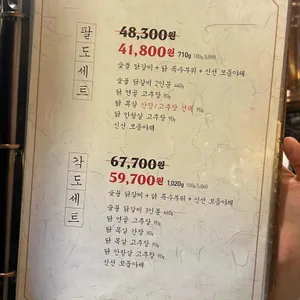 팔도세트
48,300원
41,800원 710g 100g 5,890
숯불 닭갈비 + 닭 특수부위 + 신선 모듬야채
숯불 닭갈비 2인분 440g
닭 연골 고추장 90g
닭 목살 간장/고추장 선택 90g
닭 안창살 고추장 90g
신선 모듬야채
각도세트
67,700원
59,700원 1,020g 100g 5,860
숯불 닭갈비 + 닭 특수부위 + 신선 모듬야채
숯불 닭갈비 3인분 660g
닭 연골 고추장 90g
닭 목살 간장 90g
닭 목살 고추장 90g
닭 안창살 고추장 90g
신선 모듬야채